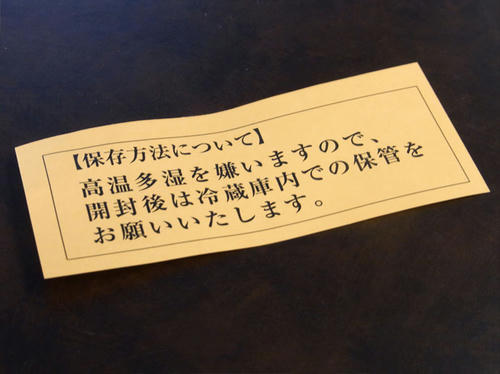 【保存方法について】
高温多湿を嫌いますので、
開封後は冷蔵庫内での保管を
お願いいたします。